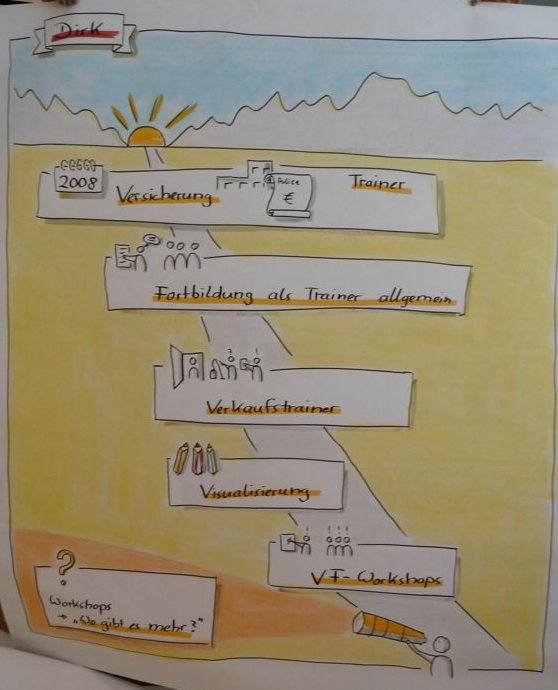 Dirk
2008
Versicherung
Police
€
Trainer
Fortbildung als Trainer allgemein
Verkaufstrainer
Visualisierung
VT-Workshops
?
Workshops
→ „Wo gibt es mehr?"